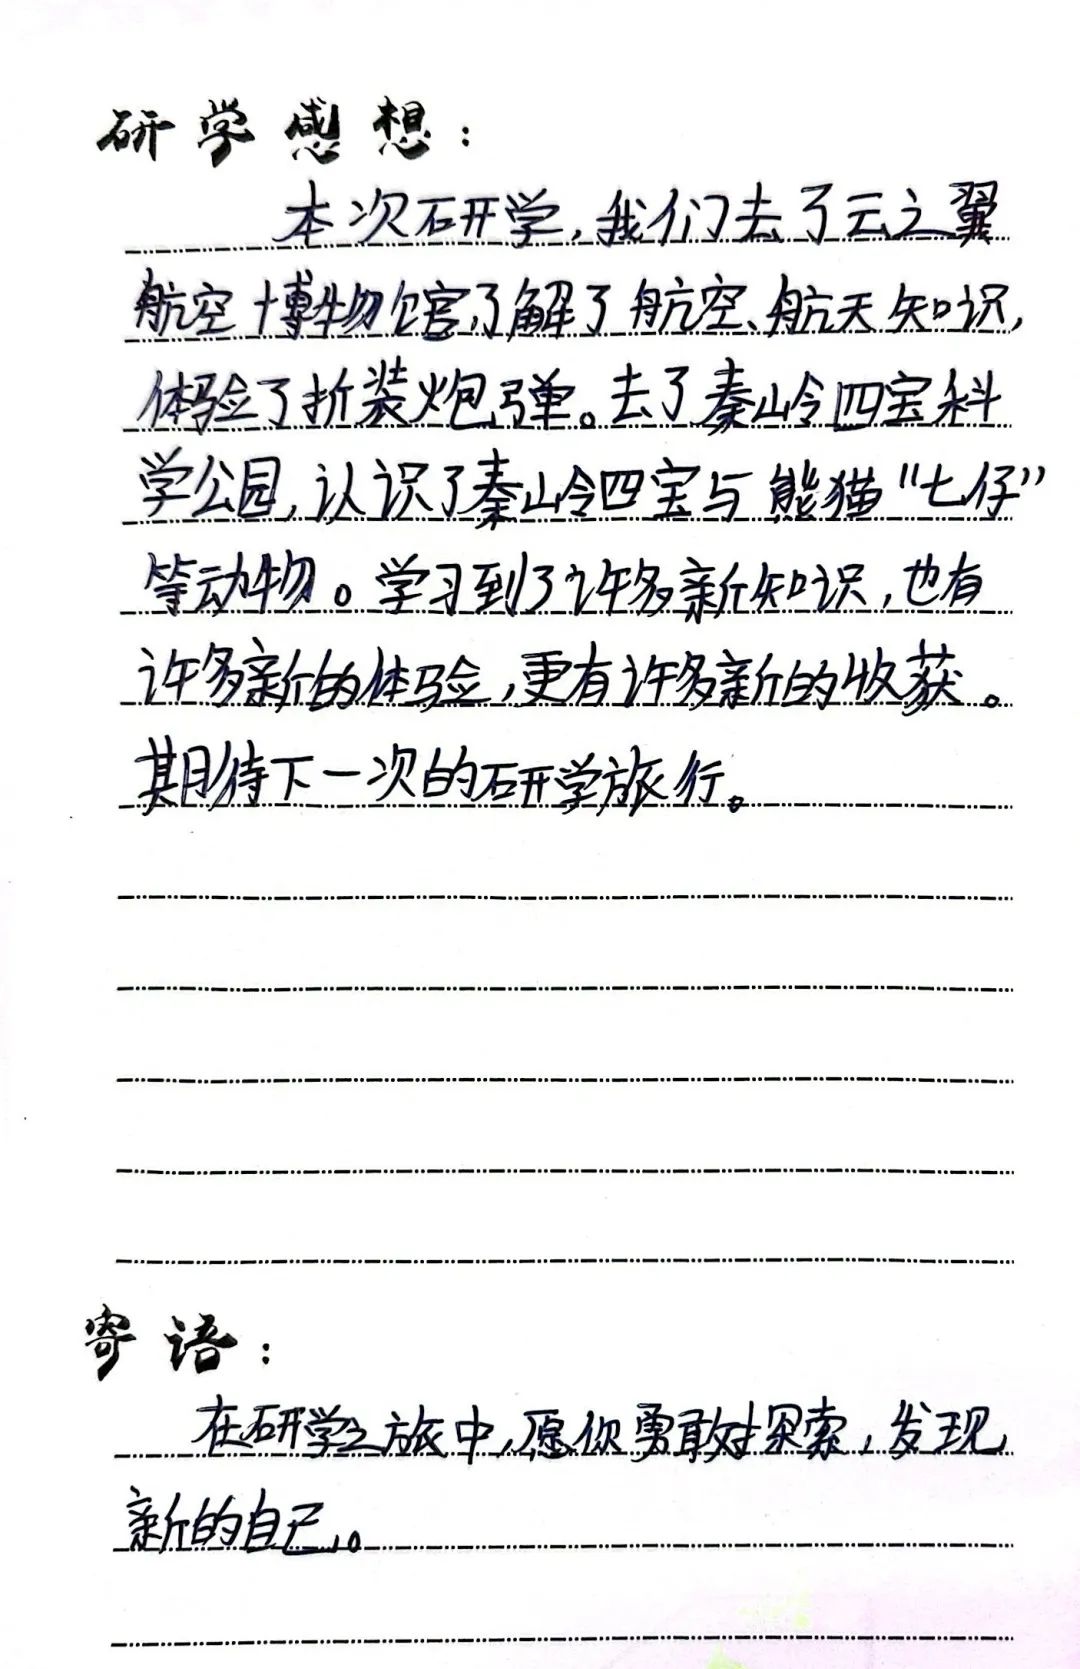 研学感想：
本次研学，我们去了云之翼
航空博物馆了解了航空、航天知识，
体验了折装炮弹。去了秦岭四宝科
学公园，认识了秦岭四宝与熊猫“七仔”
等动物。学习到了许多新知识，也有
许多新的体验，更有许多新的收获。
期待下一次的研学旅行。
寄语：
在研学之旅中，愿你勇敢探索，发现
新的自己。